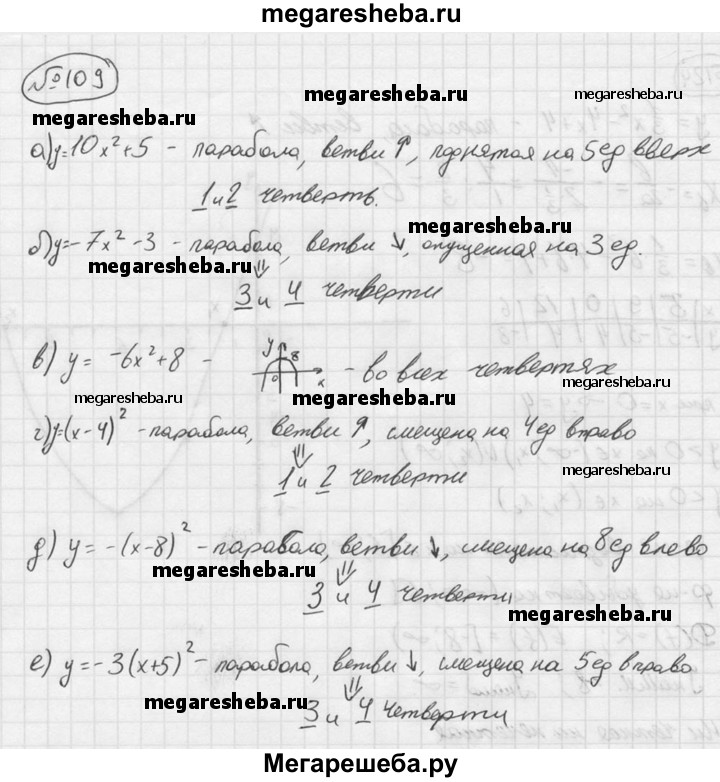 megaresheba.ru
№109
megaresheba.ru
megaresheba.ru
megaresheba.ru
а) y=10x²+5 - парабола, ветви ↑, поднятая на 5 ед вверх
1 и 2 четверть.
megaresheba.ru
б) y=-7x²-3 - парабола, ветви ↓, опущенная на 3 ед.
megaresheba.ru ⇓
3 и 4 четверти
в) y = -6x²+8 - y 8 0 x - во всех четвертях
megaresheba.ru
megaresheba.ru
megaresheba.ru
г) y=(x-4)² - парабола, ветви ↑, смещена на 4 ед вправо
⇓
1 и 2 четверти
megaresheba.ru
д) y = -(x-8)² - парабола, ветви ↓, смещена на 8 ед влево
megaresheba.ru ⇓
3 и 4 четверти
megaresheba.ru
е) y=-3(x+5)² - парабола, ветви ↓, смещена на 5 ед вправо
megaresheba.ru ⇓
3 и 4 четверти
Мегарешеба.ру